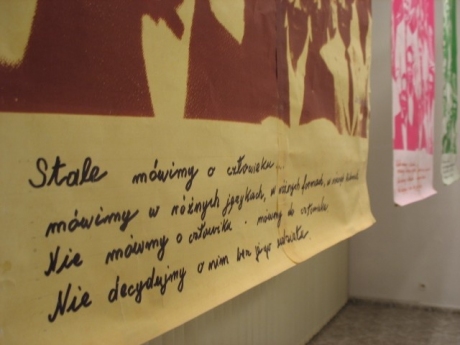 Stale mówimy o człowieku
mówimy w różnych językach, w różnych formach, w
Nie mówmy o człowieku - mówmy do człowieka
Nie decydujmy o nim bez jego udziału.